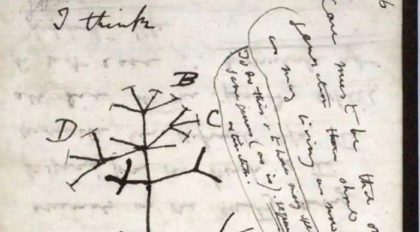 I think
B
C
D
must be that
generation then should
as many living as now
To do this & to have many species in
same genus (as is). requires
extinction.